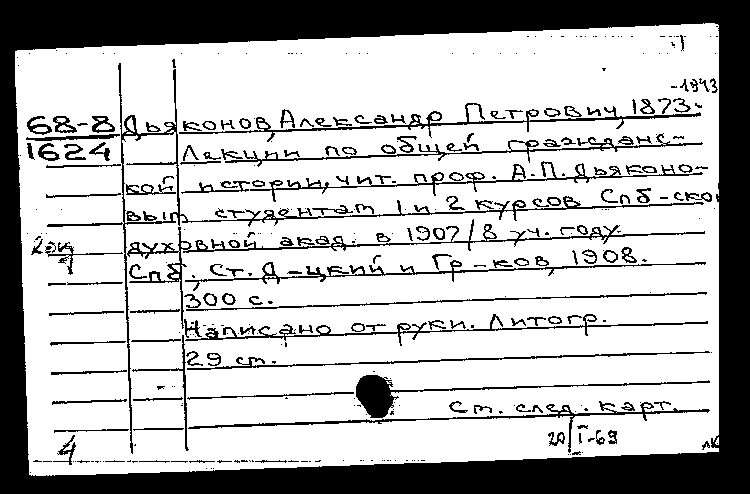 -1943
68-8 Дьяконов, Александр Петрович, 1873-
1624 Лекции по общей гражданс-
кой истории, чит. проф. А.П. Дьяконо-
вым студентам 1 и 2 курсов Спб-ской
духовной акад. в 1907/8 уч. году.
Спб., Ст. Д-цкий и Гр-ков, 1908.
300 с.
Написано от руки. Литогр.
29 см.
См. след. карт.
4 20/I-69